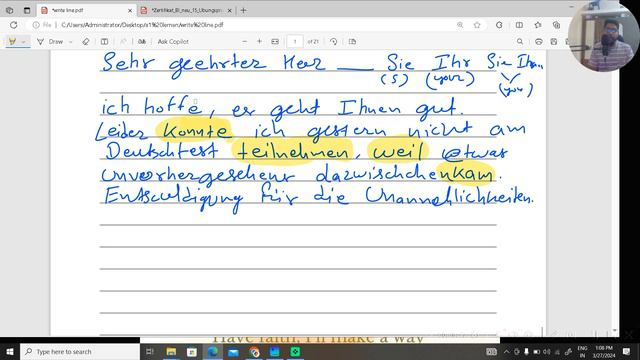 *write line.pdf
*Zertifikat_BI_neu_15_Übungspr
File C:/Users/Administrator/Desktop/s1%20lernen/write%20line.pdf
Draw
Ask Copilot
1 of 21
Sehr geehrter Herr ___ Sie Ihr Sie Ihr..
(S) (your) (you)
ich hoffe, es geht Ihnen gut.
Leider konnte ich gestern nicht am
Deutschtest teilnehmen, weil etwas
unvorhergesehens dazwischchenkam.
Entsculdigung für die Unannehlichkeiten.
Have faith, I'll make a way
Type here to search
ENG
IN
1:08 PM
3/27/2024